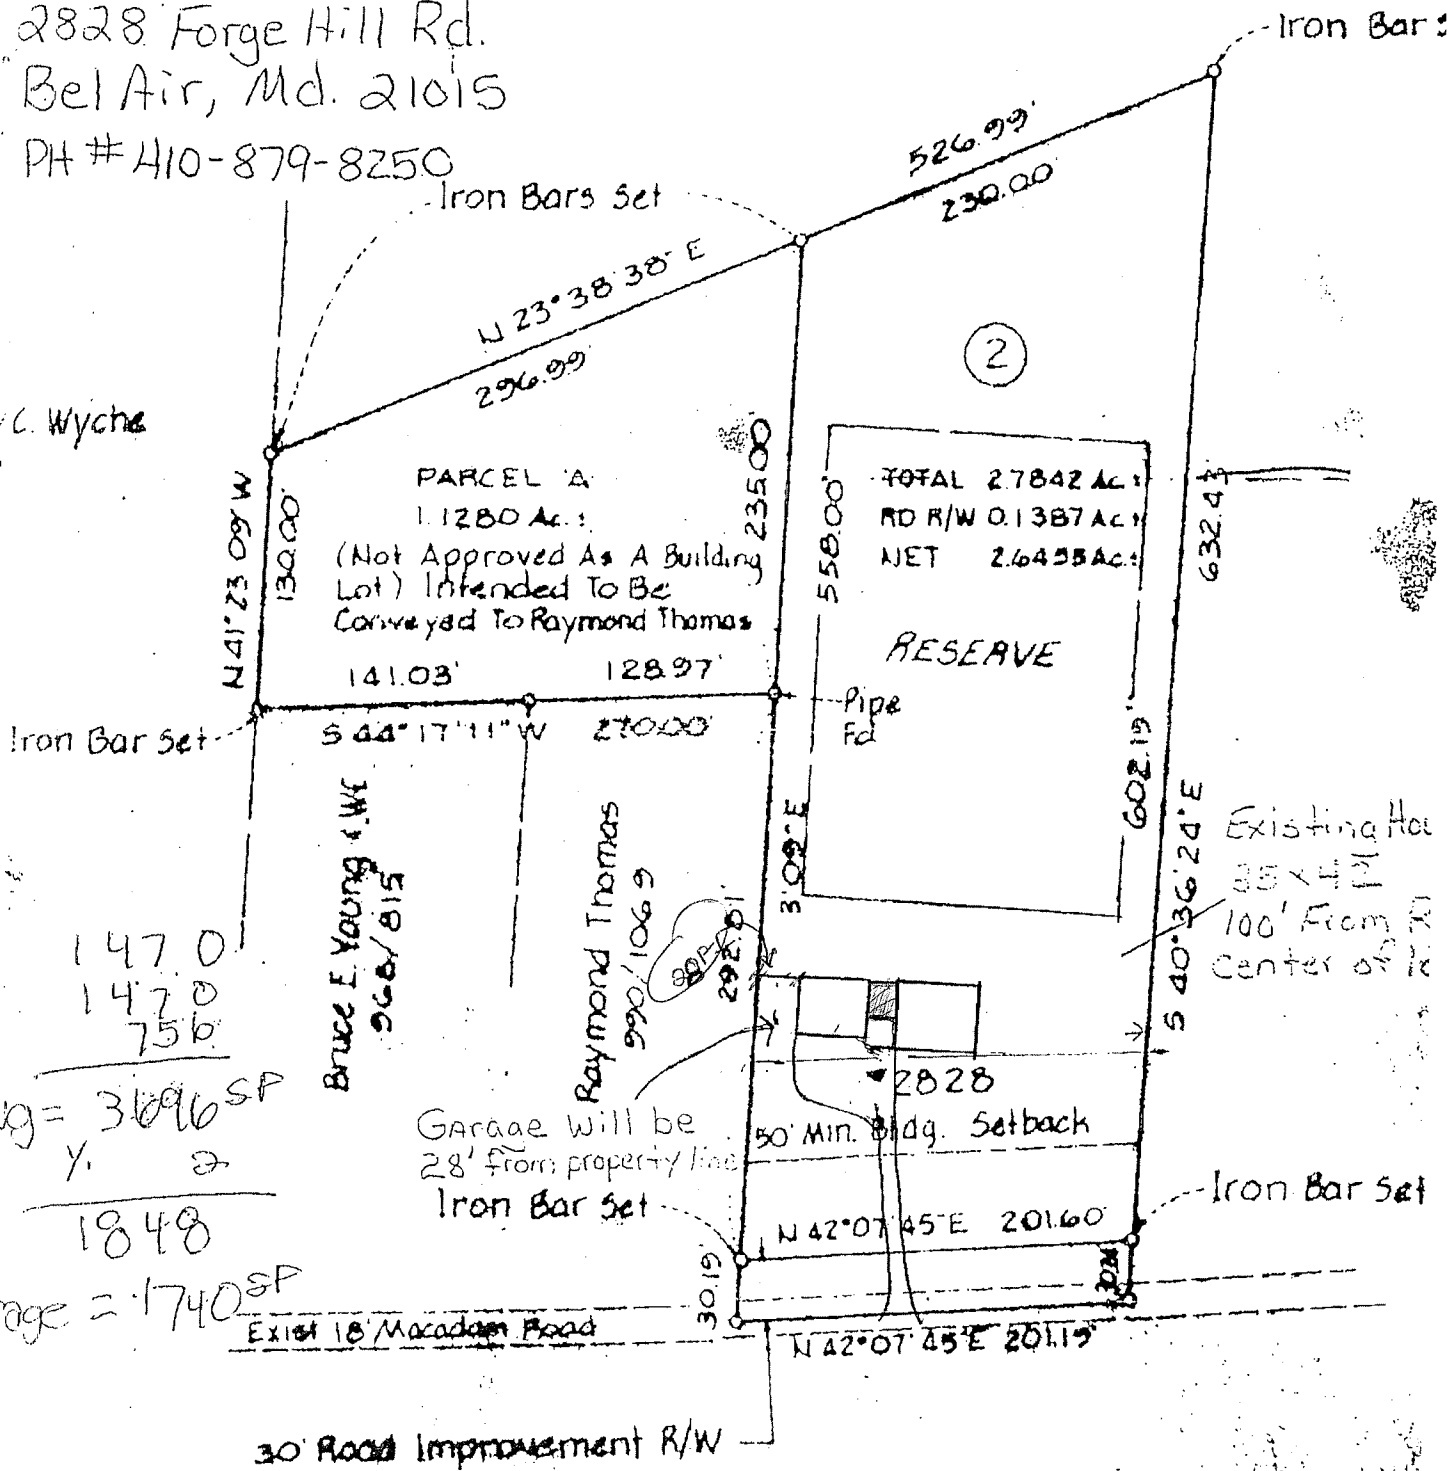 2828 Forge Hill Rd.
Bel Air, Md. 21015
PH # 410-879-8250
Iron Bar
Iron Bars Set
526.99'
230.00
N 23° 38' 38" E
296.99
2
C. Wyche
PARCEL 'A'
1.1280 Ac. ±
(Not Approved As A Building
Lot) Intended To Be
Conveyed To Raymond Thomas
N 41° 23' 09" W
130.00'
235.00
558.00'
TOTAL 2.7842 Ac. ±
RD R/W 0.1387 Ac. ±
NET 2.6455 Ac. ±
632.43
RESERVE
141.03'
128.97'
Pipe
Fd
Iron Bar Set
S 44° 17' 11" W
270.00'
602.19'
S 40° 36' 24" E
3' 09" E
292.81'
Bruce E. Young & Wf
968/815
Raymond Thomas
990/1069
28 FT
Existing Hou
100' From R
Center of
147.0
147.0
75.6
= 3696 SF
2
1848
age = 1740 SF
2828
Garage Will be
28' from property line
50' Min. Bldg. Setback
Iron Bar Set
Iron Bar Set
N 42° 07' 45" E 201.60'
30.19'
Exist 18' Macadam Road
N 42° 07' 45" E 201.19'
30' Road Improvement R/W